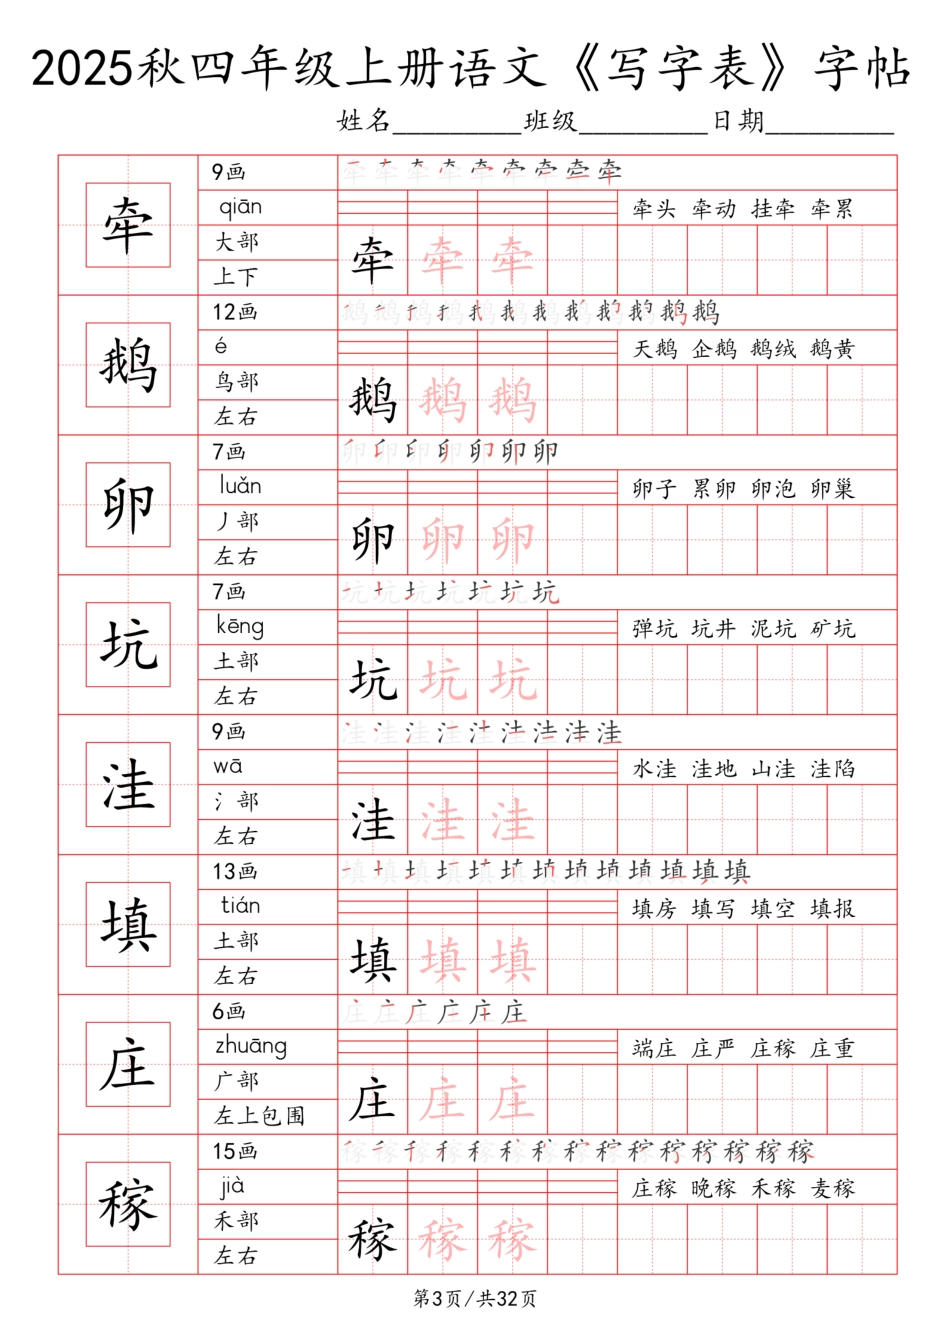 2025秋四年级上册语文《写字表》字帖
姓名_________班级_________日期_________
牵
9画
牵 牵 牵 牵 牵 牵 牵 牵 牵
qiān
牵头 牵动 挂牵 牵累
大部
上下
牵 牵 牵
鹅
12画
鹅 鹅 鹅 鹅 鹅 鹅 鹅 鹅 鹅 鹅 鹅 鹅
é
天鹅 企鹅 鹅绒 鹅黄
鸟部
左右
鹅 鹅 鹅
卵
7画
卵 卵 卵 卵 卵 卵 卵
luǎn
卵子 累卵 卵泡 卵巢
丿部
左右
卵 卵 卵
坑
7画
坑 坑 坑 坑 坑 坑 坑
kēng
弹坑 坑井 泥坑 矿坑
土部
左右
坑 坑 坑
洼
9画
洼 洼 洼 洼 洼 洼 洼 洼 洼
wā
水洼 洼地 山洼 洼陷
氵部
左右
洼 洼 洼
填
13画
填 填 填 填 填 填 填 填 填 填 填 填 填
tián
填房 填写 填空 填报
土部
左右
填 填 填
庄
6画
庄 庄 庄 庄 庄 庄
zhuāng
端庄 庄严 庄稼 庄重
广部
左上包围
庄 庄 庄
稼
15画
稼 稼 稼 稼 稼 稼 稼 稼 稼 稼 稼 稼 稼 稼 稼
jià
庄稼 晚稼 禾稼 麦稼
禾部
左右
稼 稼 稼
第3页/共32页